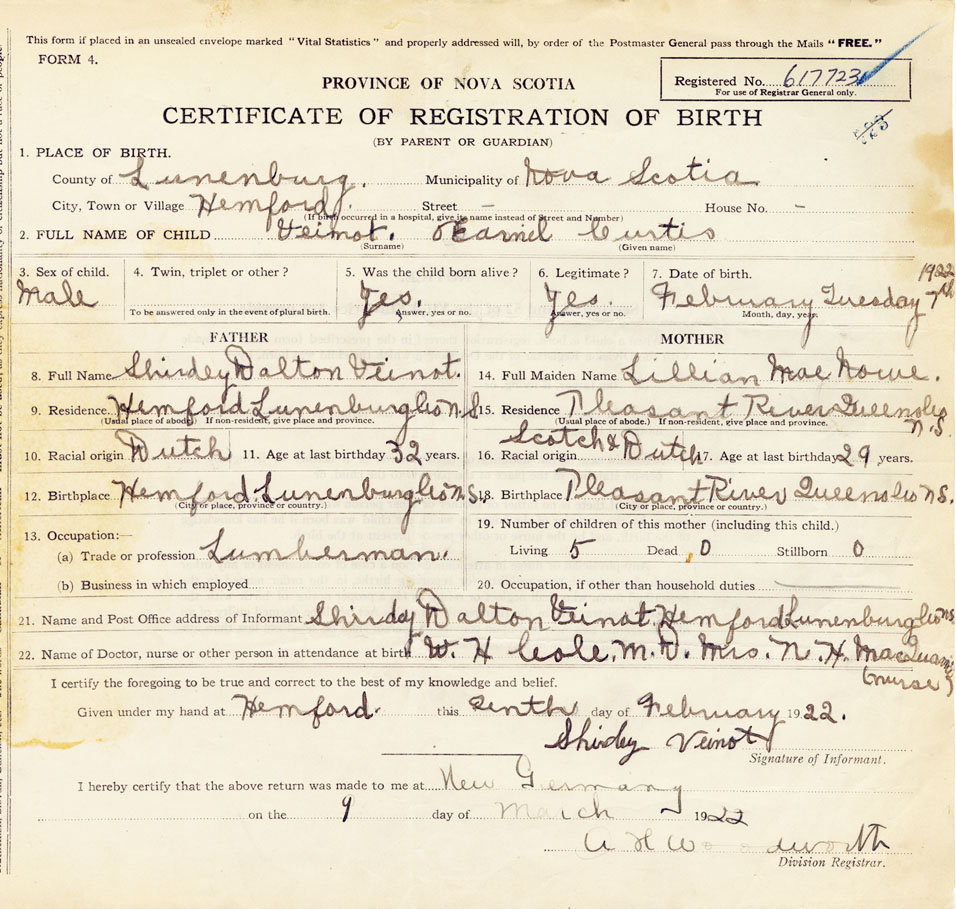 This form if placed in an unsealed envelope marked "Vital Statistics" and properly addressed will, by order of the Postmaster General pass through the Mails "FREE."
FORM 4.
Registered No. 617723
For use of Registrar General only.
PROVINCE OF NOVA SCOTIA
CERTIFICATE OF REGISTRATION OF BIRTH
(BY PARENT OR GUARDIAN)
1. PLACE OF BIRTH.
County of Lunenburg. Municipality of Nova Scotia
City, Town or Village Hemford. Street - House No. -
(If birth occurred in a hospital, give its name instead of Street and Number)
2. FULL NAME OF CHILD Veinot. Curtis
(Surname) (Given name)
3. Sex of child. 4. Twin, triplet or other? 5. Was the child born alive? 6. Legitimate? 7. Date of birth. 1922
Male Yes. Yes. February Tuesday 7th
To be answered only in the event of plural birth. Answer, yes or no. Answer, yes or no. Month, day, year.
FATHER MOTHER
8. Full Name Shirdey Dalton Veinot. 14. Full Maiden Name Lillian Mae Nowe.
9. Residence. Hemford Lunenburg Co N.S 15. Residence Pleasant River Queens Co N.S.
(Usual place of abode.) If non-resident, give place and province. (Usual place of abode.) If non-resident, give place and province.
10. Racial origin Dutch 11. Age at last birthday 32 years. 16. Racial origin Scotch & Dutch 17. Age at last birthday 29 years.
12. Birthplace Hemford. Lunenburg Co N.S. 18. Birthplace Pleasant River Queens Co N.S.
(City or place, province or country.) (City or place, province or country.)
13. Occupation:— 19. Number of children of this mother (including this child.)
(a) Trade or profession Lumberman. Living 5 Dead 0 Stillborn 0
(b) Business in which employed 20. Occupation, if other than household duties
21. Name and Post Office address of Informant Shirdey Dalton Veinot. Hemford Lunenburg Co N.S.
22. Name of Doctor, nurse or other person in attendance at birth W. H Cole. M.D. Mrs. N. H.
(nurse)
I certify the foregoing to be true and correct to the best of my knowledge and belief.
Given under my hand at Hemford. this day of February 1922.
Shirdey Veinot
Signature of Informant.
I hereby certify that the above return was made to me at New Germany
on the 9 day of March 1922
A H Woodworth
Division Registrar.